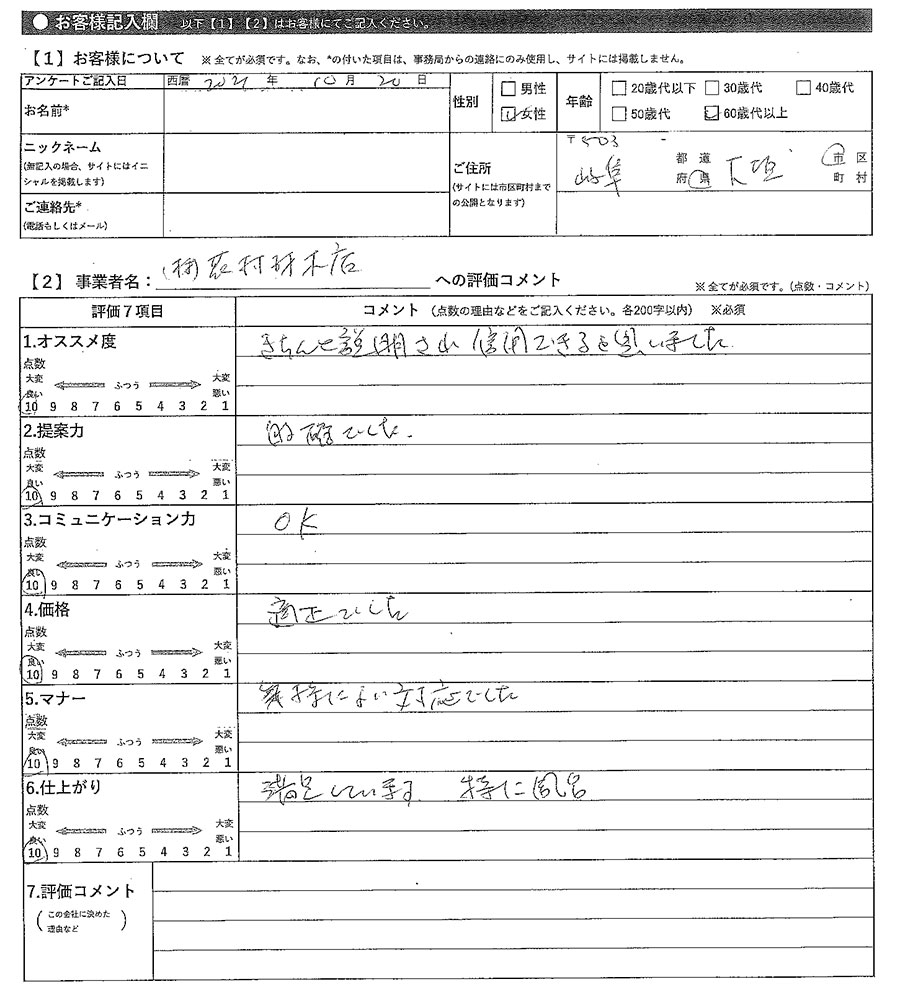 ● お客様記入欄 以下【1】【2】はお客様にてご記入ください。
【1】お客様について ※ 全てが必須です。なお、*の付いた項目は、事務局からの連絡にのみ使用し、サイトには掲載しません。
アンケートご記入日 西暦 2021 年 10 月 20 日
お名前*
性別 □ 男性 ☑ 女性
年齢 □ 20歳代以下 □ 30歳代 □ 40歳代
□ 50歳代 ☑ 60歳代以上
ニックネーム
(無記入の場合、サイトにはイニ
シャルを掲載します)
ご連絡先*
(電話もしくはメール)
ご住所
(サイトには市区町村まで
の公開となります)
〒503 -
岐阜 都 道 府 県 大垣 市 区 町 村
【2】事業者名: (株) 村材木店 への評価コメント
※ 全てが必須です。(点数・コメント)
評価7項目 コメント (点数の理由などをご記入ください。各200字以内) ※必須
1.オススメ度 きちんと説明され 信用できると思いました
点数
大変 ふつう 大変
良い 悪い
10 9 8 7 6 5 4 3 2 1
2.提案力 的確でした.
点数
大変 ふつう 大変
良い 悪い
10 9 8 7 6 5 4 3 2 1
3.コミュニケーション力 OK
点数
大変 ふつう 大変
良い 悪い
10 9 8 7 6 5 4 3 2 1
4.価格 適正でした
点数
大変 ふつう 大変
良い 悪い
10 9 8 7 6 5 4 3 2 1
5.マナー 気持によい対応でした
点数
大変 ふつう 大変
良い 悪い
10 9 8 7 6 5 4 3 2 1
6.仕上がり 満足しています 特に風呂
点数
大変 ふつう 大変
良い 悪い
10 9 8 7 6 5 4 3 2 1
7.評価コメント
(この会社に決めた
理由など)